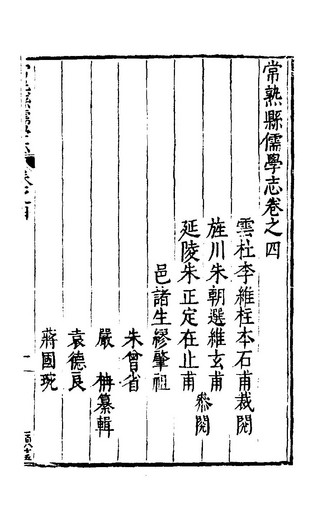 常熟縣儒學志卷之四
雲杜李維柱本石甫裁閱
旌川朱朝選維玄甫
延陵朱正定在止甫
叅閱
邑諸生繆肇祖
朱曾省
嚴栴纂輯
袁德良
蔣國珫